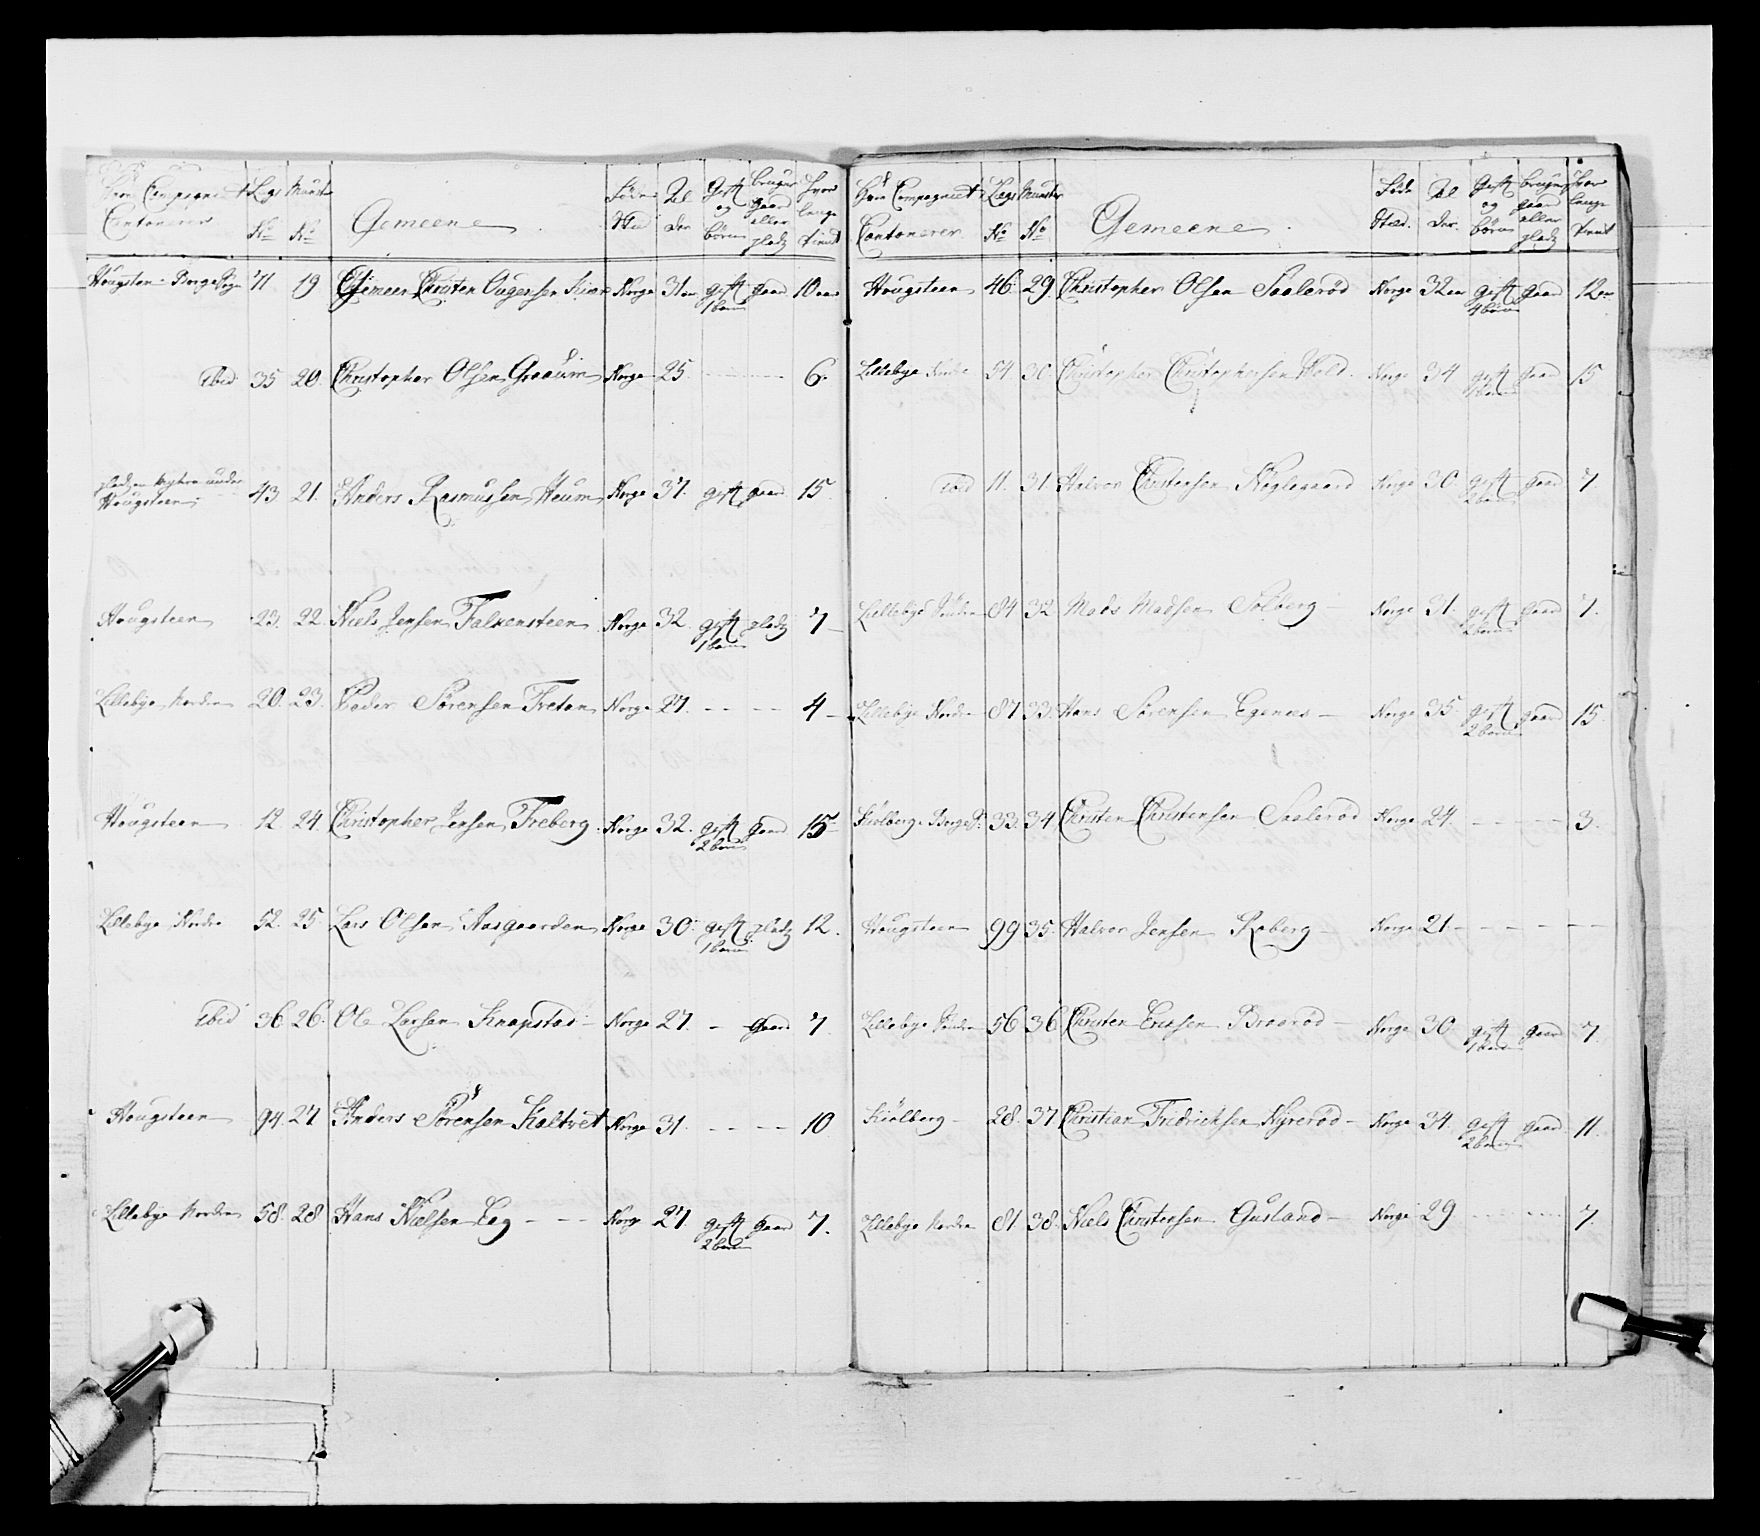 Compagniet Lægs Munster Gemeene Føde Al Gift bruger hvor
Cantonerer No No Stæd der og gaard længe
børn eller tient
pladz
Hougsteen Borge Sogn 71 19 Gemeen Christen Norge 31 gift gaard 10
1 barn
ibid 35 20 Christopher Olsen Graaum Norge 25 - - - 6.
under
Hougsteen 43 21. Anders Rasmussen Heum Norge 37. gift gaard 15
Hougsteen 23. 22. Niels Jensen Falkensteen Norge 32. gift pladz 7
1 barn
Lillebye Nordre 20. 23. Peder Sörensen Treton Norge 27. - - - 4
Hougsteen 12. 24. Christopher Jensen Freberg. Norge 32. gift gaard 15
2 børn
Lillebye Nordre 52. 25. Lars Olsen Aasgaarden Norge 30. gift pladz 12.
1 barn
ibid 36. 26. Ole Larsen Knapstad Norge 27. - gaard 7.
Hougsteen 94. 27 Anders Sörensen Kaltvet Norge 31. - - - 10
Lillebye Nordre 58. 28 Hans Nielsen Eeg - - - Norge 27. gift gaard 7.
2 børn
Compagniet Lægs Munster Gemeene Føde Al Gift bruger hvor
Cantonerer No No Stæd. der. og gaard længe
børn eller tient
pladz
Hougsteen 46. 29. Christopher Olsen Saaleröd Norge 32 gift gaard 12
4 børn
Lillebye 54. 30. Christopher Christophersen Norge 34 gift gaard 15
ibid 11. 31. Halvor Christensen Röglegaard Norge 30 gift gaard 7
2 børn
Lillebye 84 32. Mads Madsen Solberg Norge 31. gift gaard 7.
2 børn
Lillebye Nordre 87 33. Hans Sörensen Egenæs Norge 35. gift gaard 15
2 børn
Kiölberg Borge 33. 34. Christen Christensen Saaleröd Norge 24. - - - 3.
Hougsteen 99 35. Halvor Jensen Roberg Norge 21. - - - -
Lillebye 56 36 Christen Ericksen Braaröd Norge 30 gift gaard 7.
1 barn
Kiölberg 28. 37 Christian Fridricksen Nyreröd Norge 34. gift gaard 11.
2 børn
Lillebye Nordre 81 38. Niels Christensen Gusland Norge 29 - - - 7.